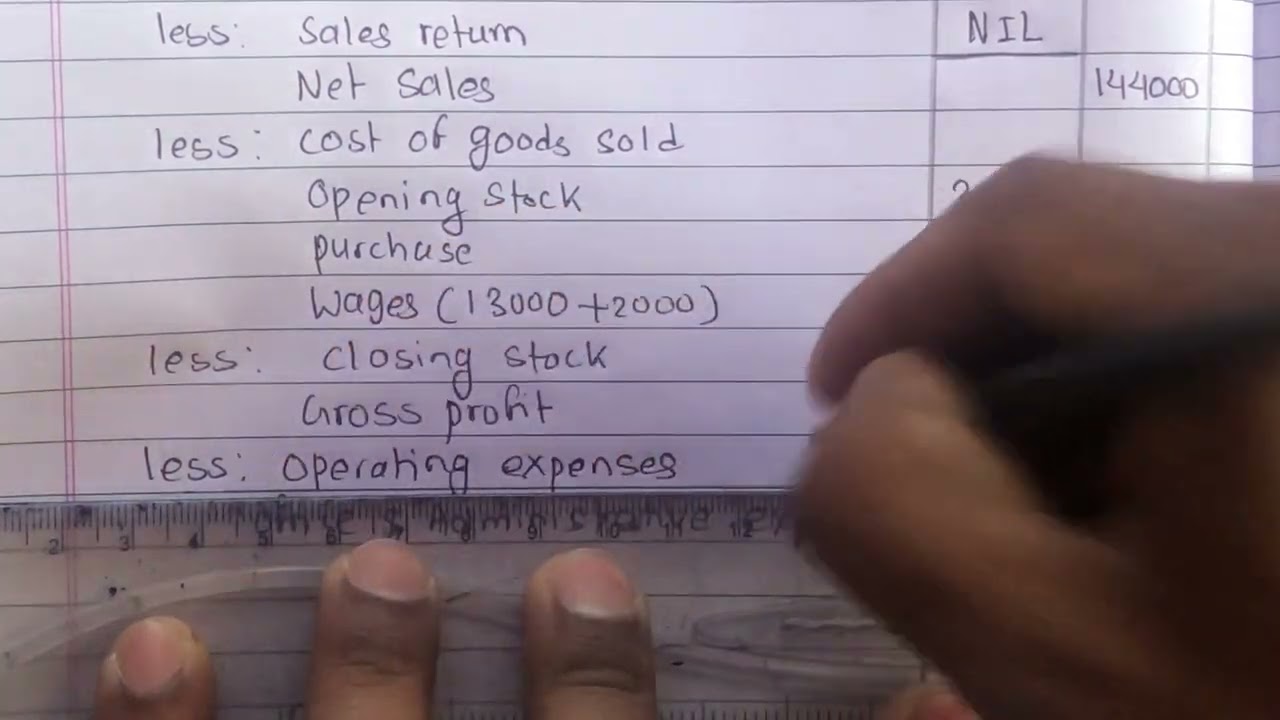 less: Sales return NIL
Net Sales 144000
less: cost of goods sold
Opening stock
purchase
Wages (13000+2000)
less: closing stock
Gross profit
less: operating expenses
2 3 4 5 6 7 8 9 10 11 12